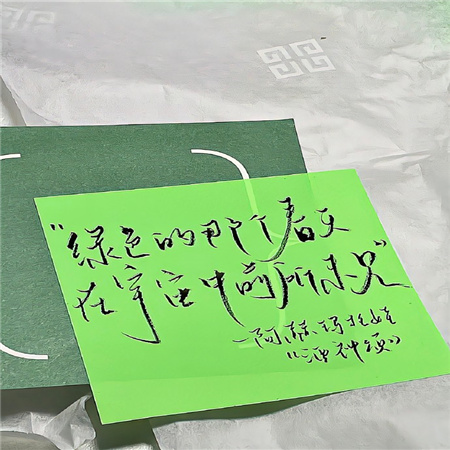 "绿色的那个春天
在宇宙中前所未见"
—阿赫玛托娃
《酒神颂》